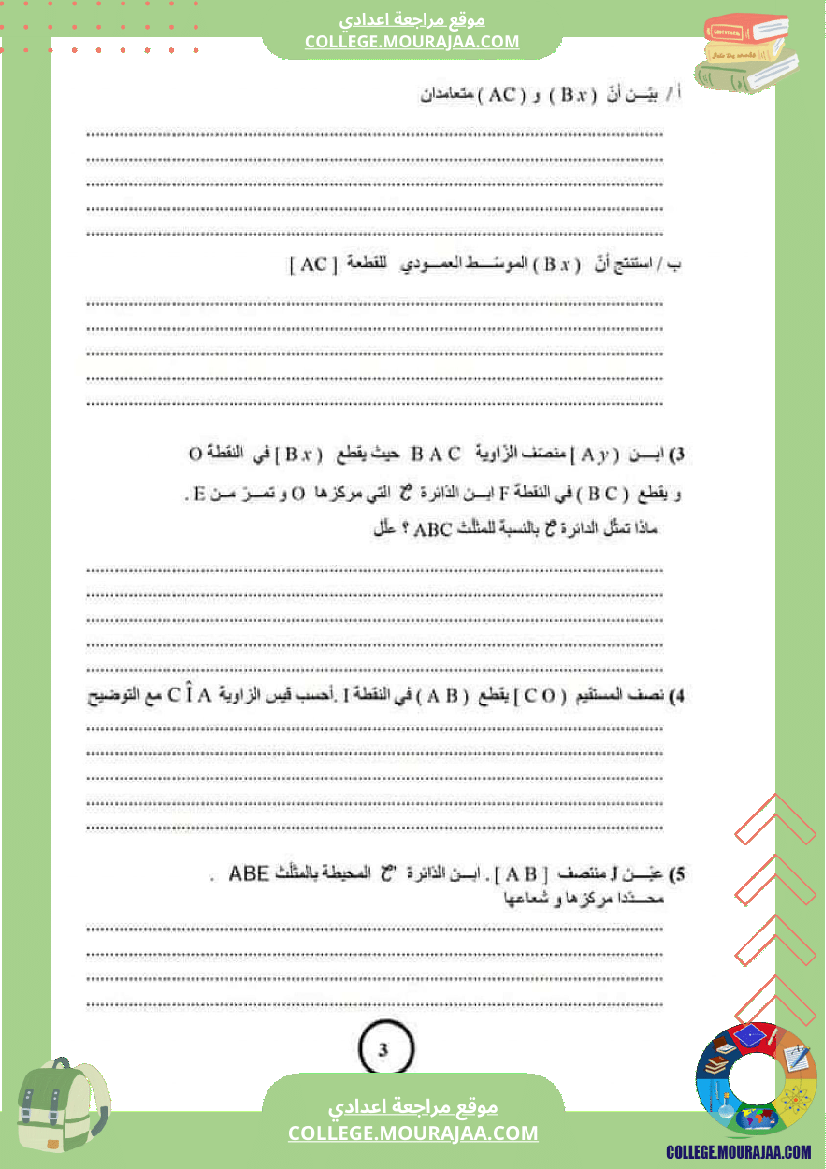 موقع مراجعة اعدادي
COLLEGE.MOURAJAA.COM
أ / بيّـــن أنّ ( B x ) و ( AC ) متعامدان
ب / استنتج أنّ ( B x ) الموسّـــط العمـــودي للقطعة [ AC ]
3) ابـــن [ A y ) منصّف الزّاوية B A C حيث يقطع [ B x ) في النقطة O
و يقطع ( B C ) في النقطة F ابـن الدّائرة ح التي مركزها O و تمـــرّ مـن E .
ماذا تمثّل الدائرة ح بالنسبة للمثلّث ABC ؟ علّل
4) نصف المستقيم [ C O ) يقطع ( A B ) في النقطة I .أحسب قيس الزاوية C Î A مع التوضيح
5) عيّـــن J منتصف [ A B ] . ابـــن الدّائرة ح' المحيطة بالمثلّث ABE .
محـــدّدا مركزها و شعاعها
3
موقع مراجعة اعدادي
COLLEGE.MOURAJAA.COM
COLLEGE.MOURAJAA.COM